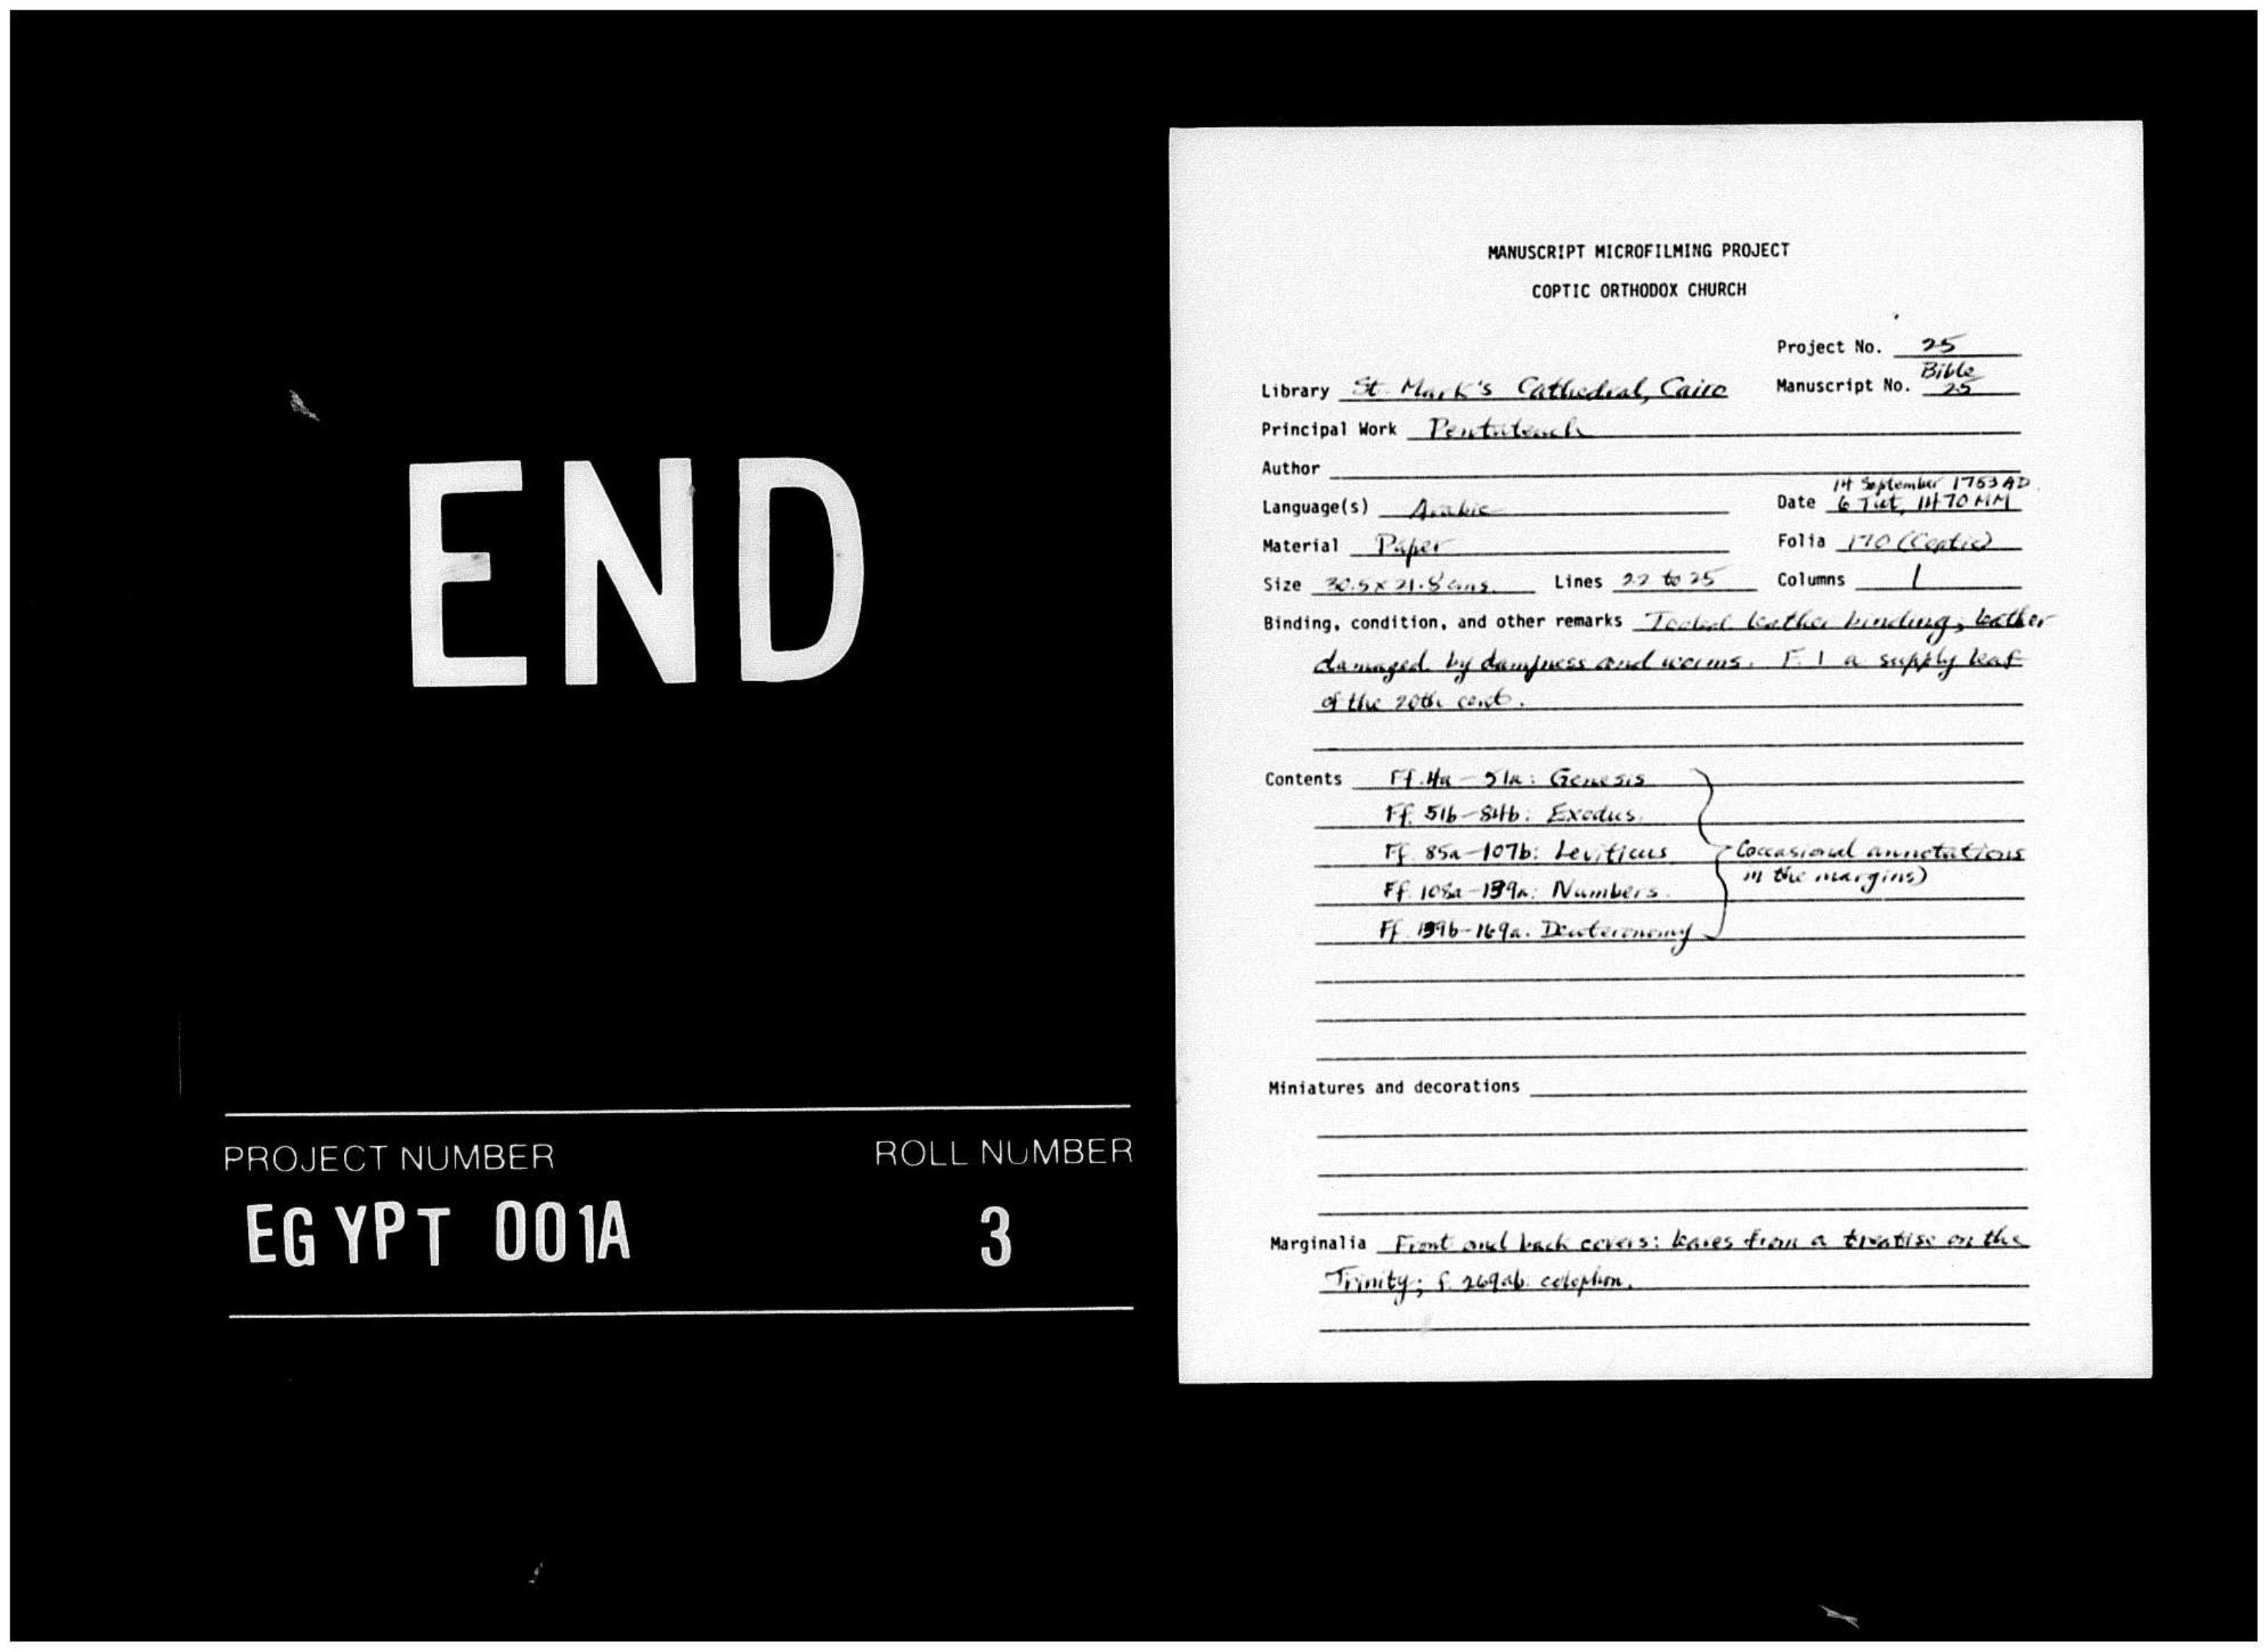 END
PROJECT NUMBER ROLL NUMBER
EGYPT 001A 3
MANUSCRIPT MICROFILMING PROJECT
COPTIC ORTHODOX CHURCH
Project No. 25
Library St. Mark's Cathedral, Cairo Manuscript No. Bible 25
Principal Work Pentateuch
Author
14 September 1753 AD
Language(s) Arabic Date 6 Tut, 1470 MM
Material Paper Folia 170 (Coptic)
Size 30.5 x 21.8 cms. Lines 22 to 25 Columns 1
Binding, condition, and other remarks Tooled leather binding; leather
damaged by dampness and worms. F. 1 a supply leaf
of the 20th cent.
Contents Ff. 4a - 51a: Genesis
Ff. 51b - 84b: Exodus
Ff. 85a - 107b: Leviticus (occasional annotations
in the margins)
Ff. 108a - 139a: Numbers
Ff. 139b - 169a: Deuteronomy
Miniatures and decorations
Marginalia Front and back covers: leaves from a treatise on the
Trinity; f. 269ab: colophon.